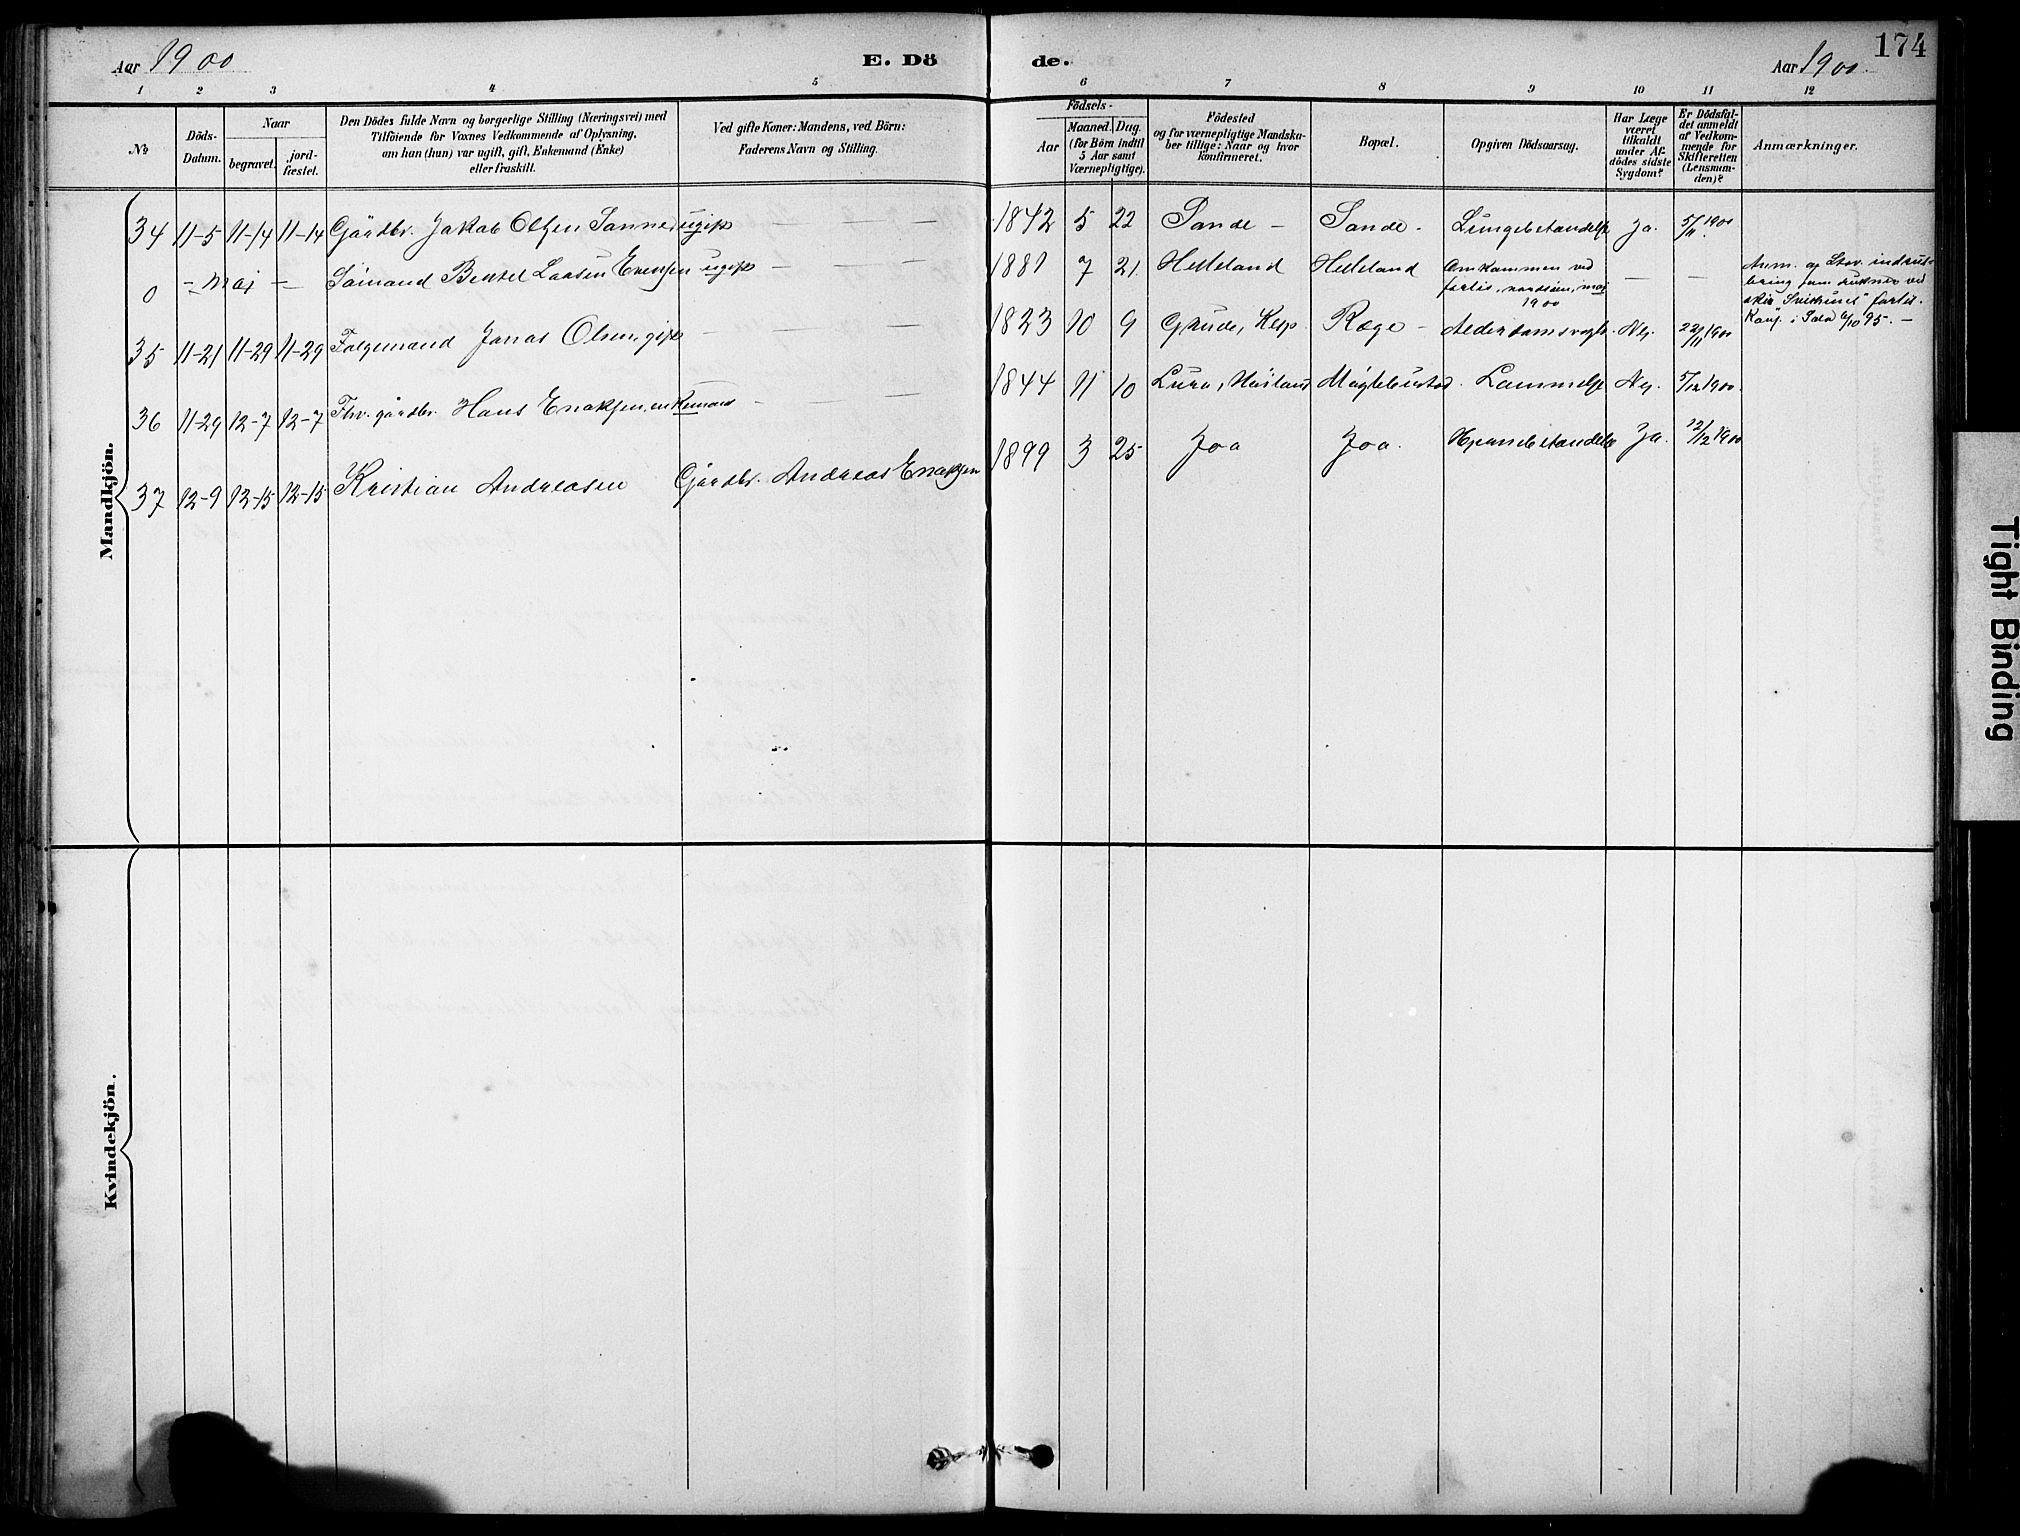 Aar 1900
E. Dö
de.
Aar 1900.
174
1 2 3 4 5 6 7 8 9 10 11 12
No
Döds-
Datum.
Naar
begravet.
jord-
fæstet.
Den Dödes fulde Navn og borgerlige Stilling (Næringsvei) med
Tilföiende for Voxnes Vedkommende af Oplysning,
om han (hun) var ugift, gift, Enkemand (Enke)
eller fraskilt.
Ved gifte Koner: Mandens, ved Börn:
Faderens Navn og Stilling.
Födsels-
Aar
Maaned.
Dag
(for Börn indtil
5 Aar samt
Værnepligtige).
Födested
og for værnepligtige Mandska-
ber tillige: Naar og hvor
konfirmeret.
Bopæl.
Opgiven Dödsaarsag.
Har Læge
været
tilkaldt
under Af-
dödes sidste
Sygdom?
Er Dödsfal-
det anmeldt
af Vedkom-
mende for
Skifteretten
(Lensman-
den)?
Anmærkninger.
Mandkjön.
34 11-5 11-14 11-14 Gårdbr. Jakob Olsen Sanne, ugift — — — 1842 5 22 Sande — Sande — Lungebetændelse Ja. 5/11 1900
0 – maj – Sömand Bertel Larsen Evensen ugift — — — 1881 7 21. Helleland Helleland Omkommen ved
forlis, nordsöen, maj
1900 — —
35 11-21 11-29 11-29 Folgemand Jonas Olsen, gift — — — 1823 10 9 Grude, Klep Ræge — Alderdomssvagh. Nej. 22/11 1900
36 11-29 12-7 12-7 Fhv. gårdbr. Hans Enoksen, enkemand — — — 1844 11 10 Lura, Höiland Lammelse Nej. 5/12 1900.
37 12-9 12-15 12-15 Kristian Andreasen Gårdbr. Andreas Enoksen 1899 3 25 Joa Joa. Ja. 12/12 1900
Kvindekjön.
Tight Binding